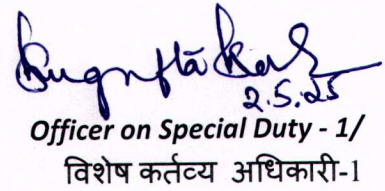 2.5.25
Officer on Special Duty - 1/
विशेष कर्तव्य अधिकारी-1